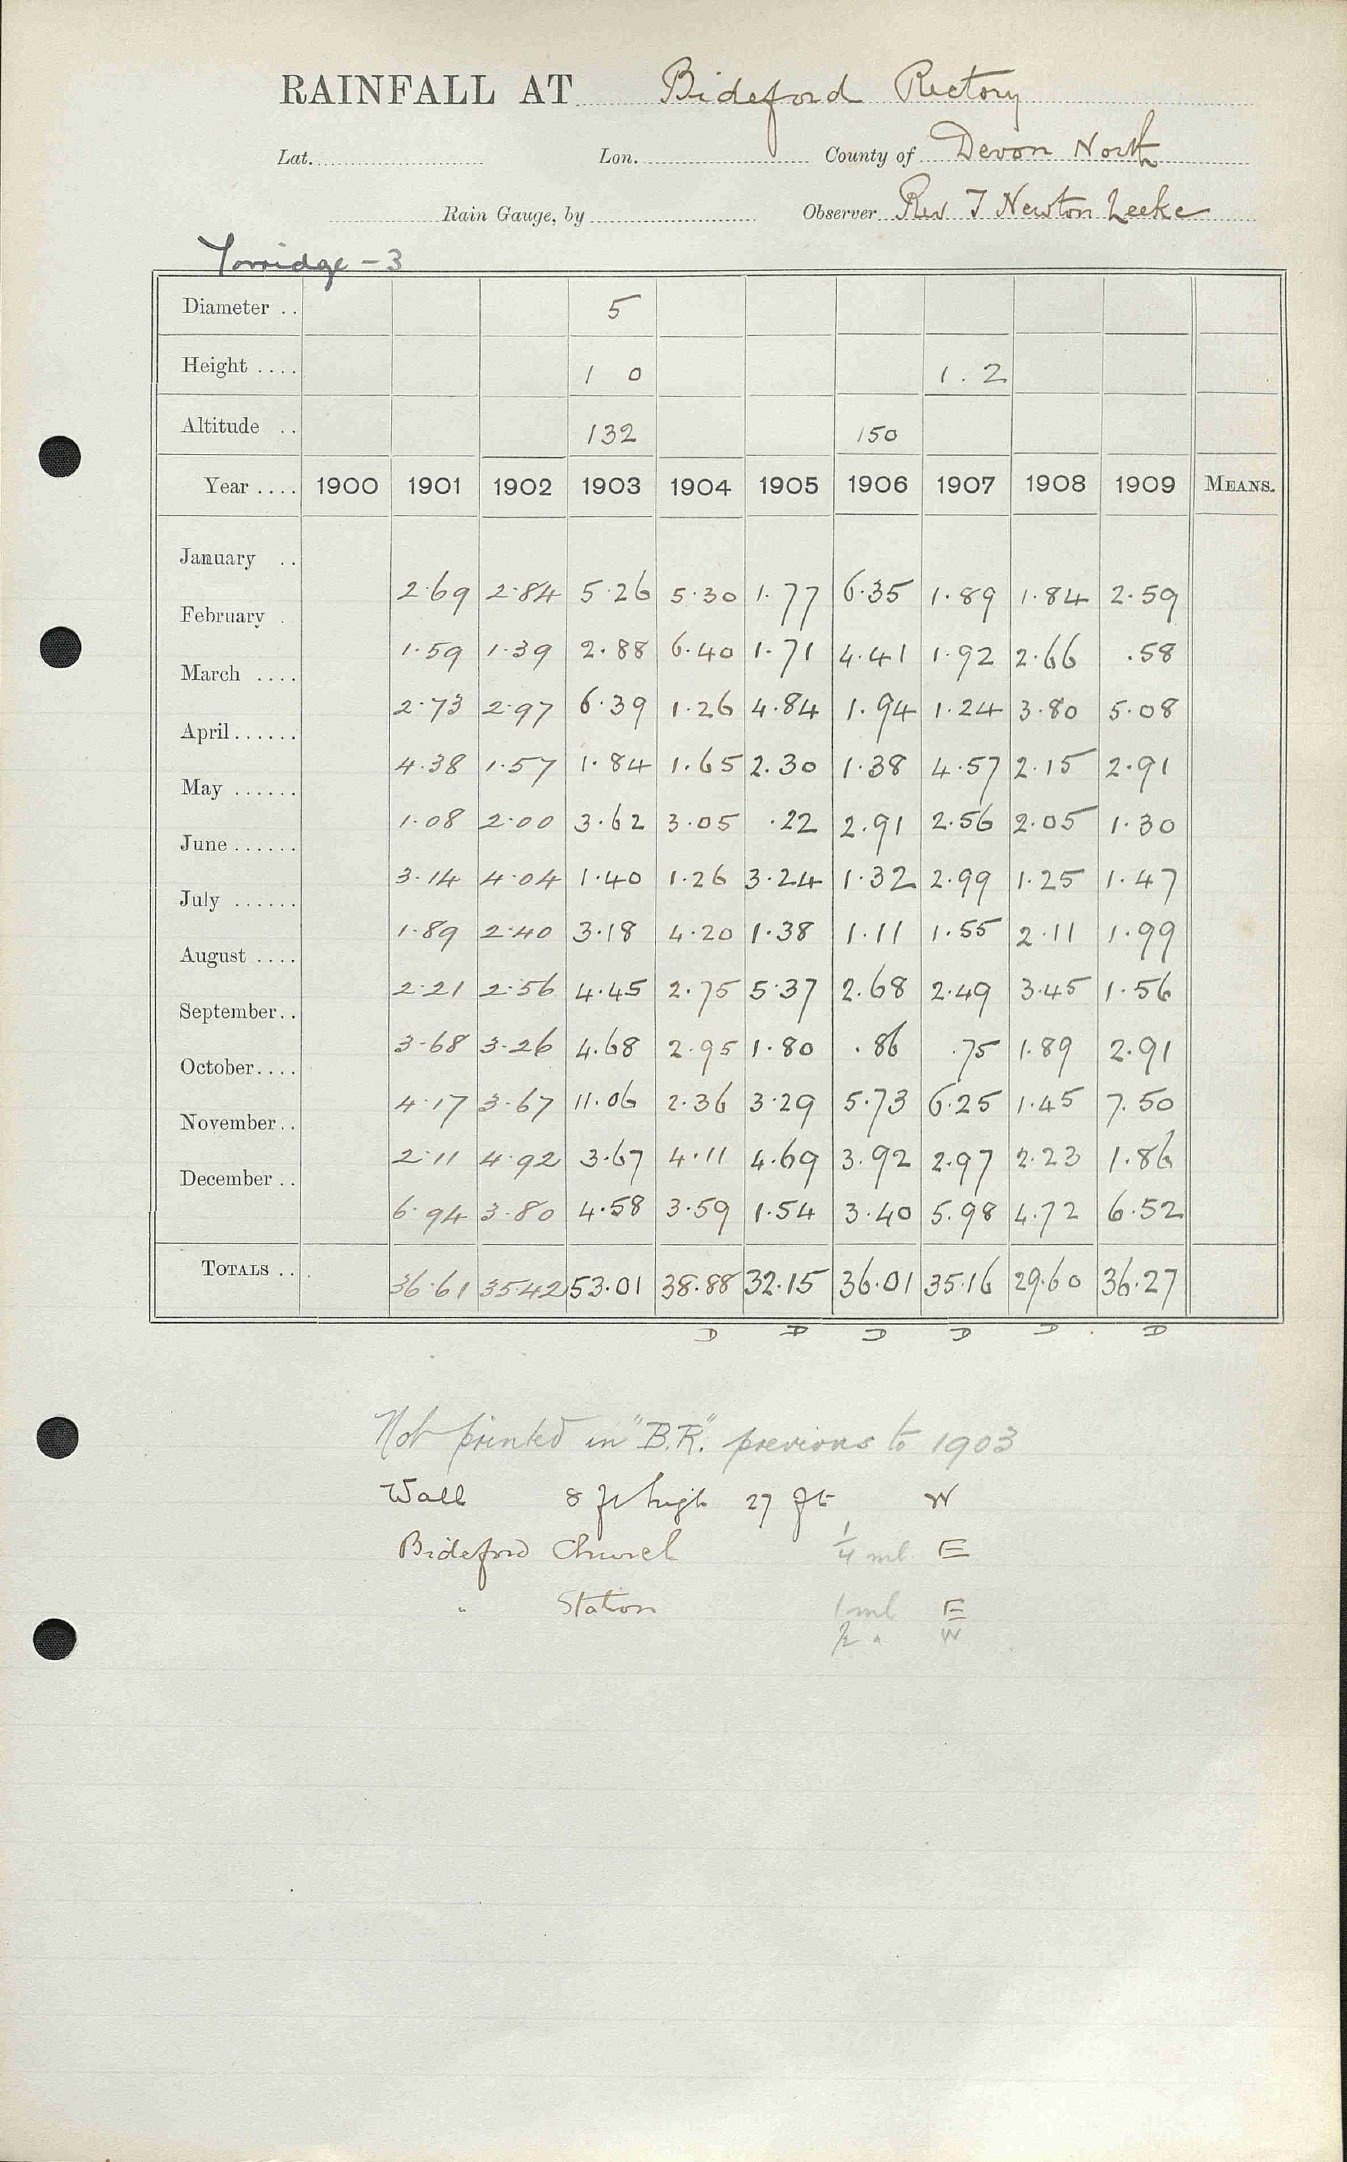 RAINFALL AT Bideford Rectory
Lat. Lon. County of Devon North
Rain Gauge, by Observer Rev T Newton Leeke
Torridge - 3
Diameter .. 5
Height .... 1 0 1.2
Altitude .. 132 150
Year .... 1900 1901 1902 1903 1904 1905 1906 1907 1908 1909 MEANS.
January .. 2.69 2.84 5.26 5.30 1.77 6.35 1.89 1.84 2.59
February . 1.59 1.39 2.88 6.40 1.71 4.41 1.92 2.66 .58
March .... 2.73 2.97 6.39 1.26 4.84 1.94 1.24 3.80 5.08
April...... 4.38 1.57 1.84 1.65 2.30 1.38 4.57 2.15 2.91
May ...... 1.08 2.00 3.62 3.05 .22 2.91 2.56 2.05 1.30
June...... 3.14 4.04 1.40 1.26 3.24 1.32 2.99 1.25 1.47
July ...... 1.89 2.40 3.18 4.20 1.38 1.11 1.55 2.11 1.99
August .... 2.21 2.56 4.45 2.75 5.37 2.68 2.49 3.45 1.56
September.. 3.68 3.26 4.68 2.95 1.80 .86 .75 1.89 2.91
October.... 4.17 3.67 11.06 2.36 3.29 5.73 6.25 1.45 7.50
November.. 2.11 4.92 3.67 4.11 4.69 3.92 2.97 2.23 1.86
December .. 6.94 3.80 4.58 3.59 1.54 3.40 5.98 4.72 6.52
TOTALS .. 36.61 35.42 53.01 38.88 32.15 36.01 35.16 29.60 36.27
D D D D D D
Not printed in "B.R." previous to 1903
Wall 8 ft high 27 ft W
Bideford Church 1/4 ml E
" Station 1 ml E
1/2 " W